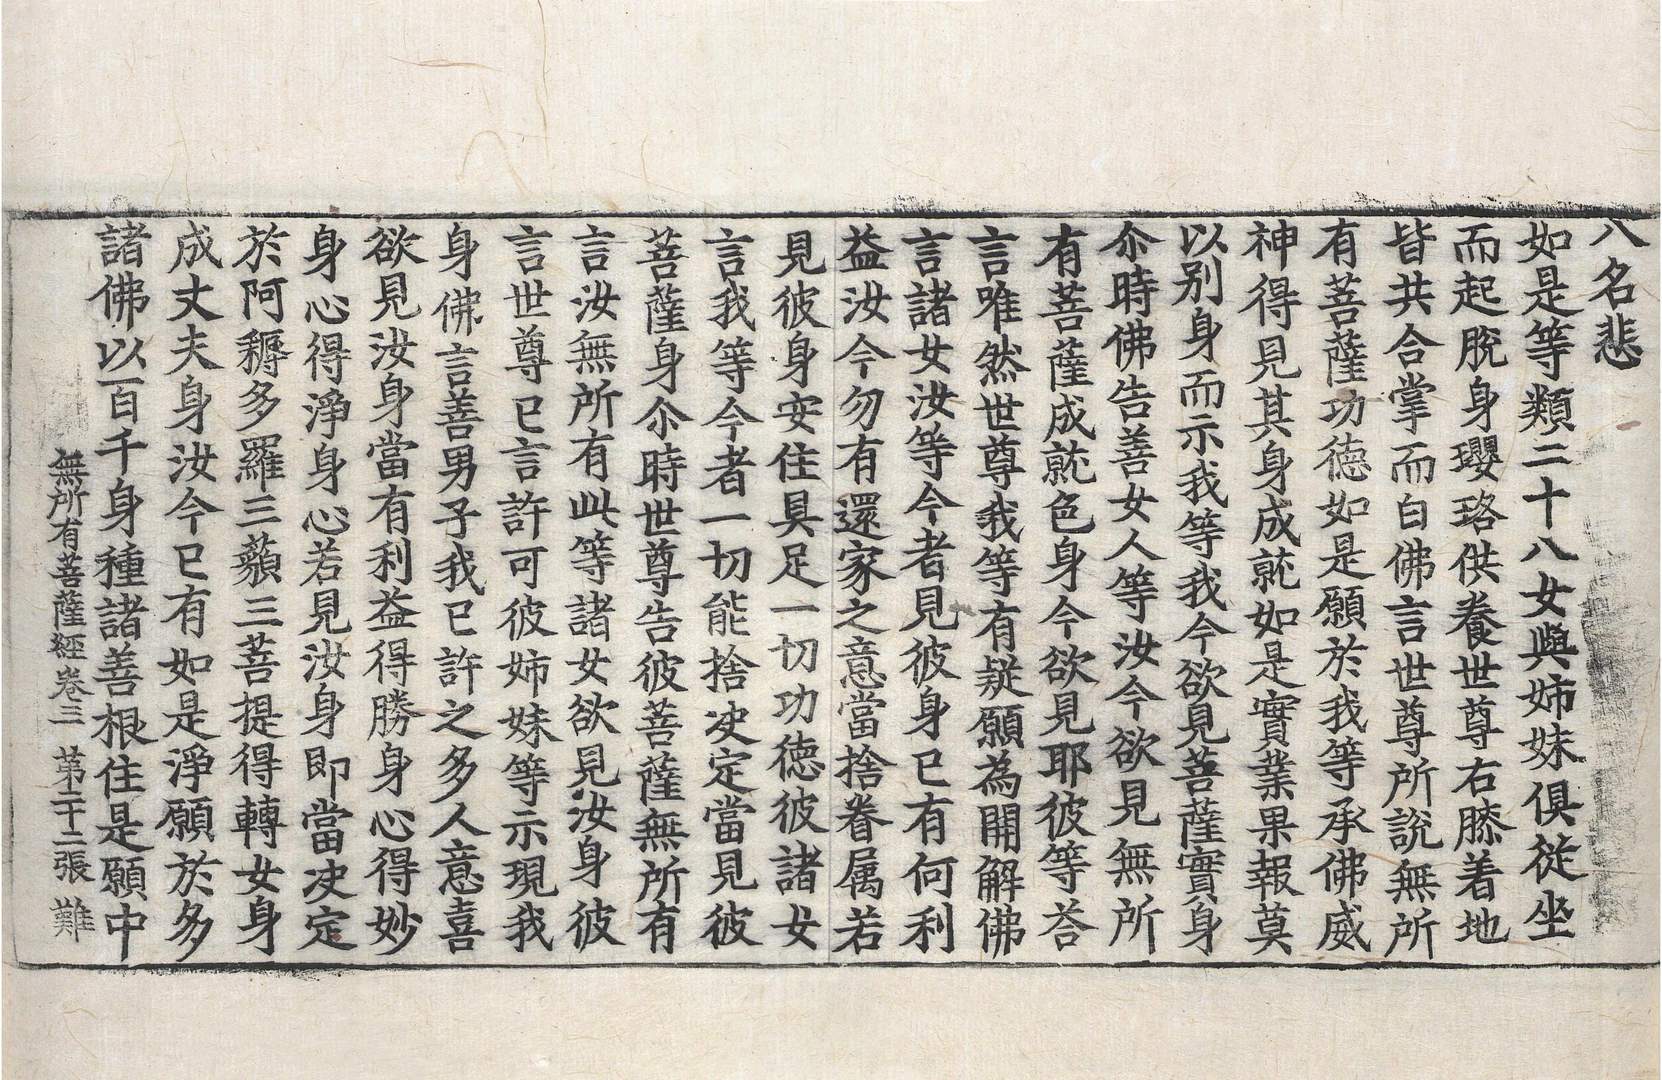 八名悲
如是等類三十八女與姊妹俱從坐
而起脫身瓔珞供養世尊右膝着地
皆共合掌而白佛言世尊所說無所
有菩薩功德如是願於我等承佛威
神得見其身成就如是實業果報莫
以别身而示我等我今欲見菩薩實身
尒時佛告善女人等汝今欲見無所
有菩薩成就色身今欲見耶彼等荅
言唯然世尊我等有疑願為開解佛
言諸女汝等今者見彼身已有何利
益汝今勿有還家之意當捨眷属若
見彼身安住具足一切功德彼諸女
言我等今者一切能捨决定當見彼
菩薩身尒時世尊告彼菩薩無所有
言汝無所有此等諸女欲見汝身彼
言世尊已言許可彼姉妹等示現我
身佛言善男子我已許之多人意喜
欲見汝身當有利益得勝身心得妙
身心得淨身心若見汝身即當决定
於阿耨多羅三藐三菩提得轉女身
成丈夫身汝今已有如是淨願於多
諸佛以百千身種諸善根住是願中
無所有菩薩經卷三 第二十二張 難